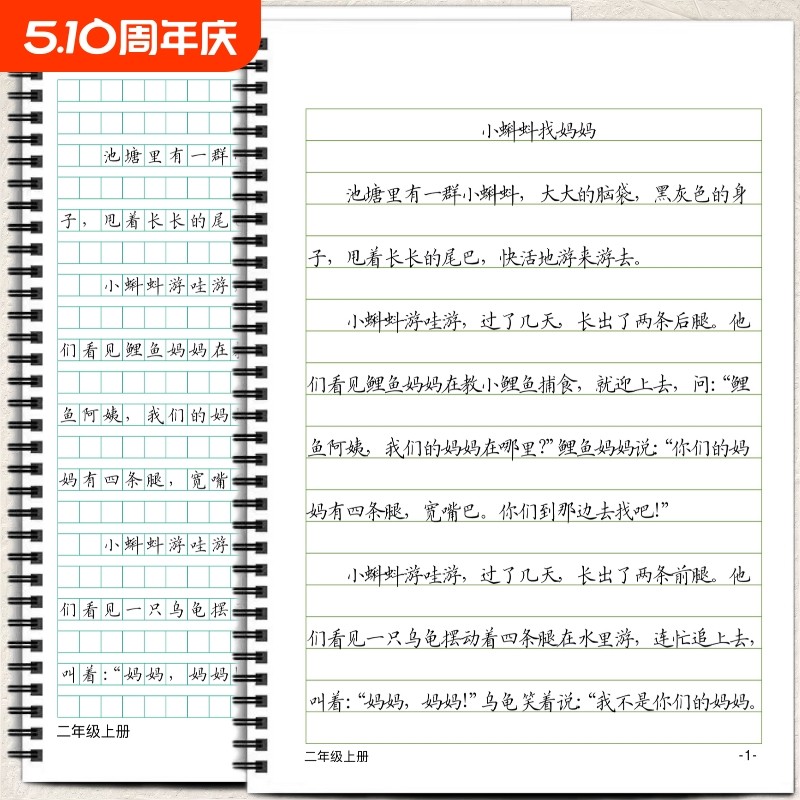 5.10周年庆
池塘里有一群
子，甩着长长的尾
小蝌蚪游哇游
们看见鲤鱼妈妈在
鱼阿姨，我们的妈
妈有四条腿，宽嘴
小蝌蚪游哇游
们看见一只乌龟摆
叫着：“妈妈，妈妈
二年级上册
小蝌蚪找妈妈
池塘里有一群小蝌蚪，大大的脑袋，黑灰色的身
子，甩着长长的尾巴，快活地游来游去。
小蝌蚪游哇游，过了几天，长出了两条后腿。他
们看见鲤鱼妈妈在教小鲤鱼捕食，就迎上去，问：“鲤
鱼阿姨，我们的妈妈在哪里？”鲤鱼妈妈说：“你们的妈
妈有四条腿，宽嘴巴。你们到那边去找吧！”
小蝌蚪游哇游，过了几天，长出了两条前腿。他
们看见一只乌龟摆动着四条腿在水里游，连忙追上去，
叫着：“妈妈，妈妈！”乌龟笑着说：“我不是你们的妈妈。
二年级上册
-1-